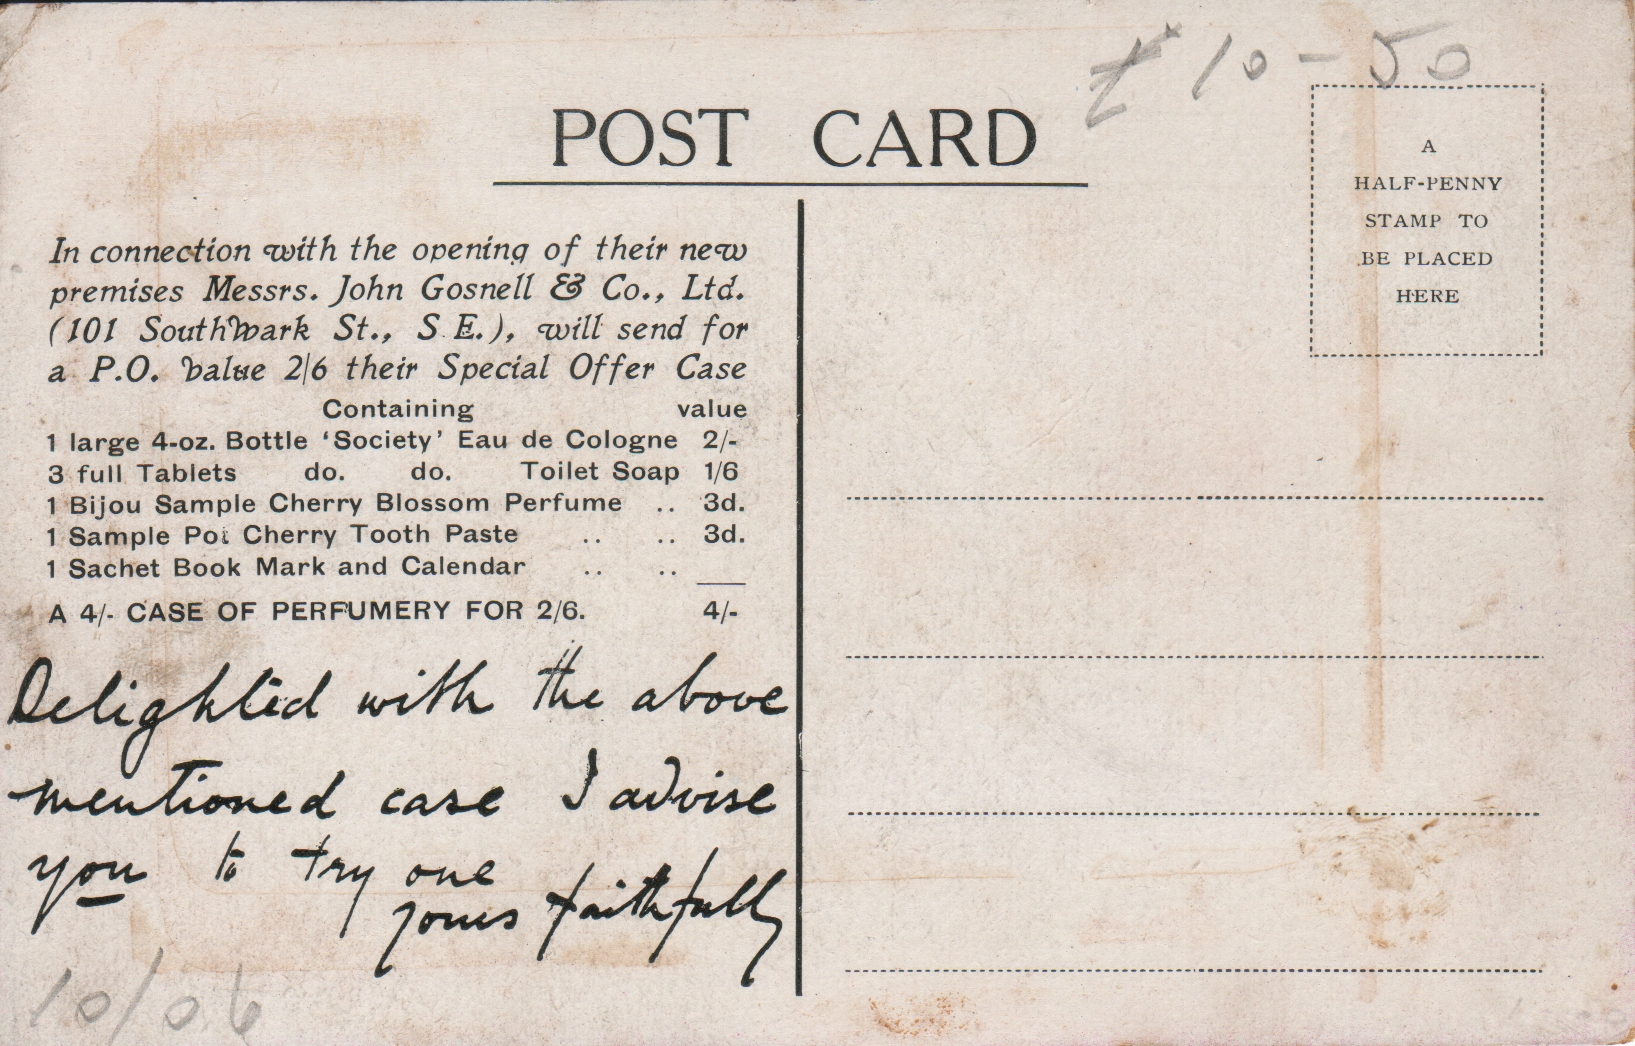 £10-50
POST CARD
A
HALF-PENNY
STAMP TO
BE PLACED
HERE
In connection with the opening of their new
premises Messrs. John Gosnell & Co., Ltd.
(101 Southwark St., S.E.), will send for
a P.O. value 2/6 their Special Offer Case
Containing value
1 large 4-oz. Bottle ‘Society’ Eau de Cologne 2/-
3 full Tablets do. do. Toilet Soap 1/6
1 Bijou Sample Cherry Blossom Perfume .. 3d.
1 Sample Pot Cherry Tooth Paste .. .. 3d.
1 Sachet Book Mark and Calendar .. ..
A 4/- CASE OF PERFUMERY FOR 2/6. 4/-
Delighted with the above
mentioned case I advise
you to try one
yours faithfully
10/06